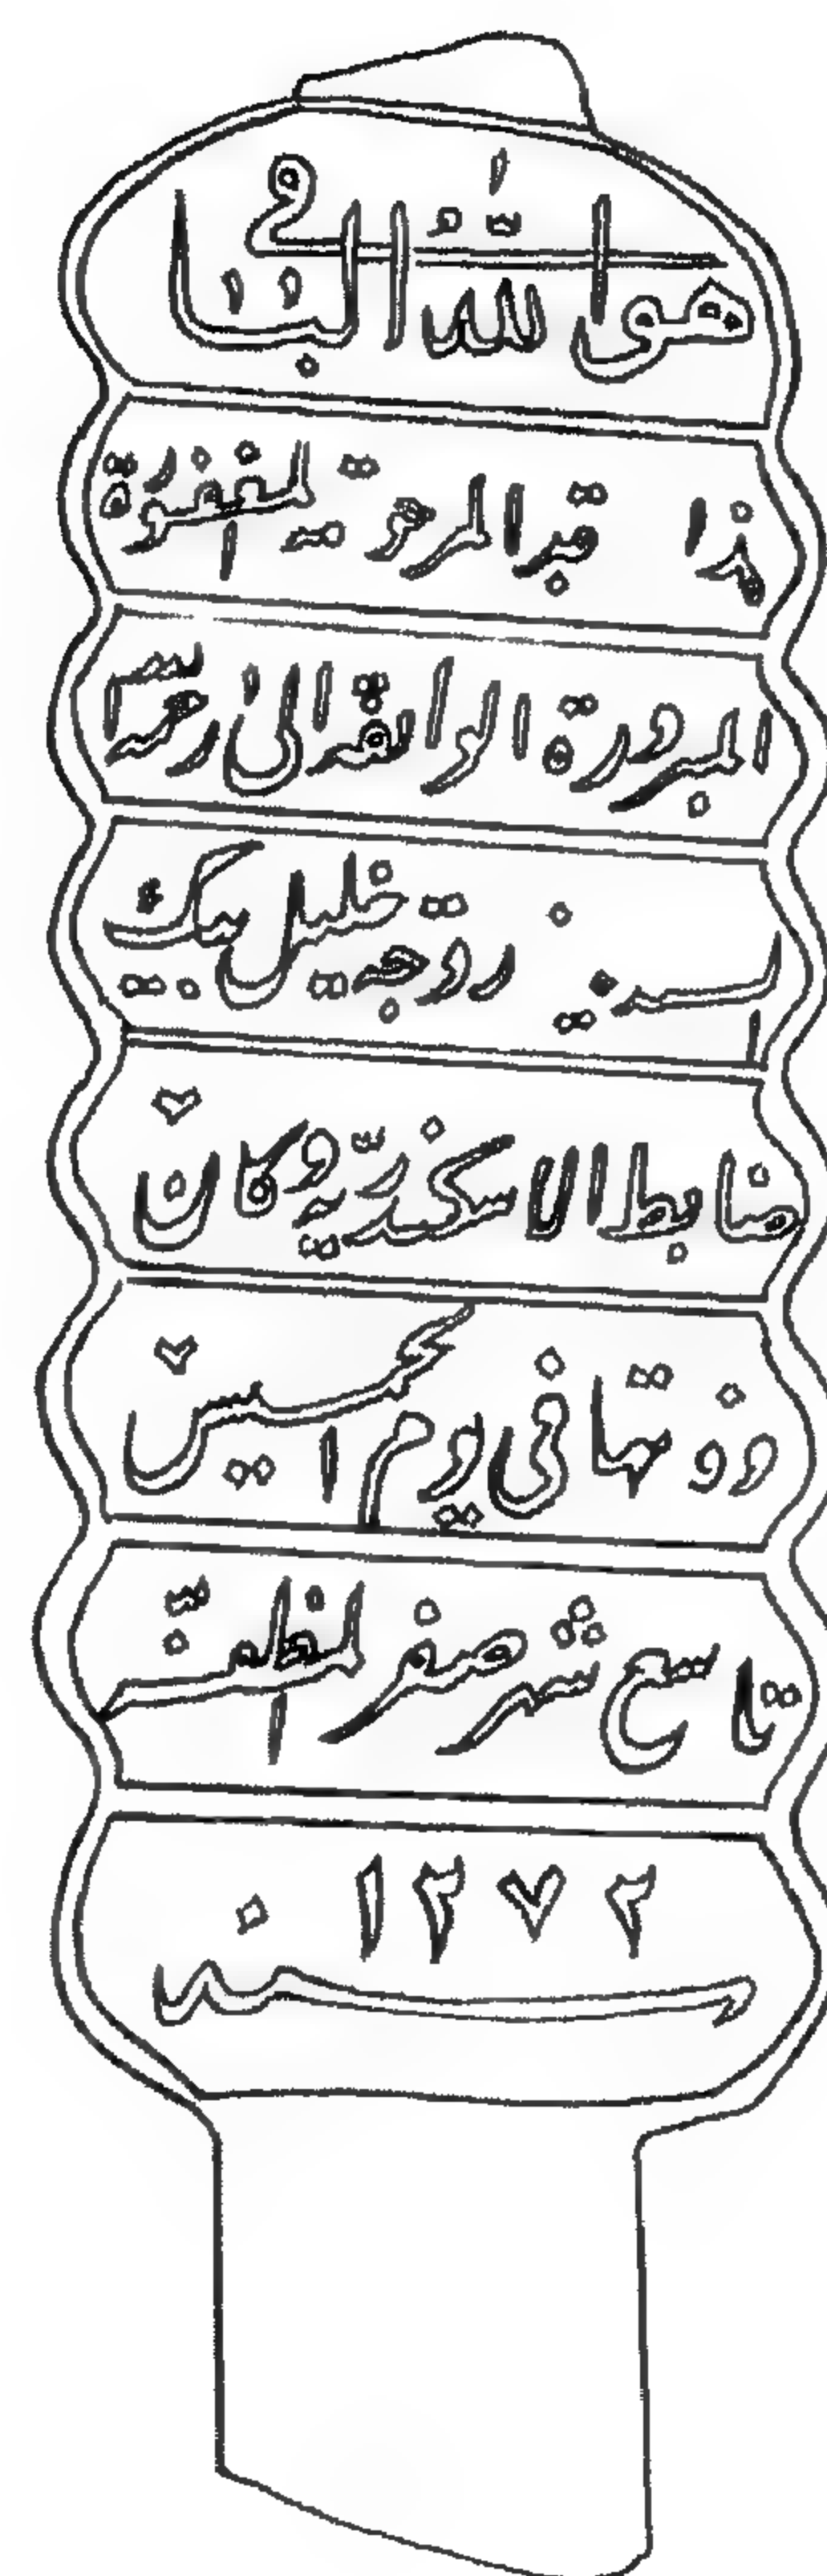 هو الله الباقي
هذا قبر المرحومة المغفورة
المبرورة الى رحمة
الست زوجة خليل بيك
ضابط الاسكندرية وكان
في يوم الخميس
تاسع شهر صفر
سنة ١٢٧٢